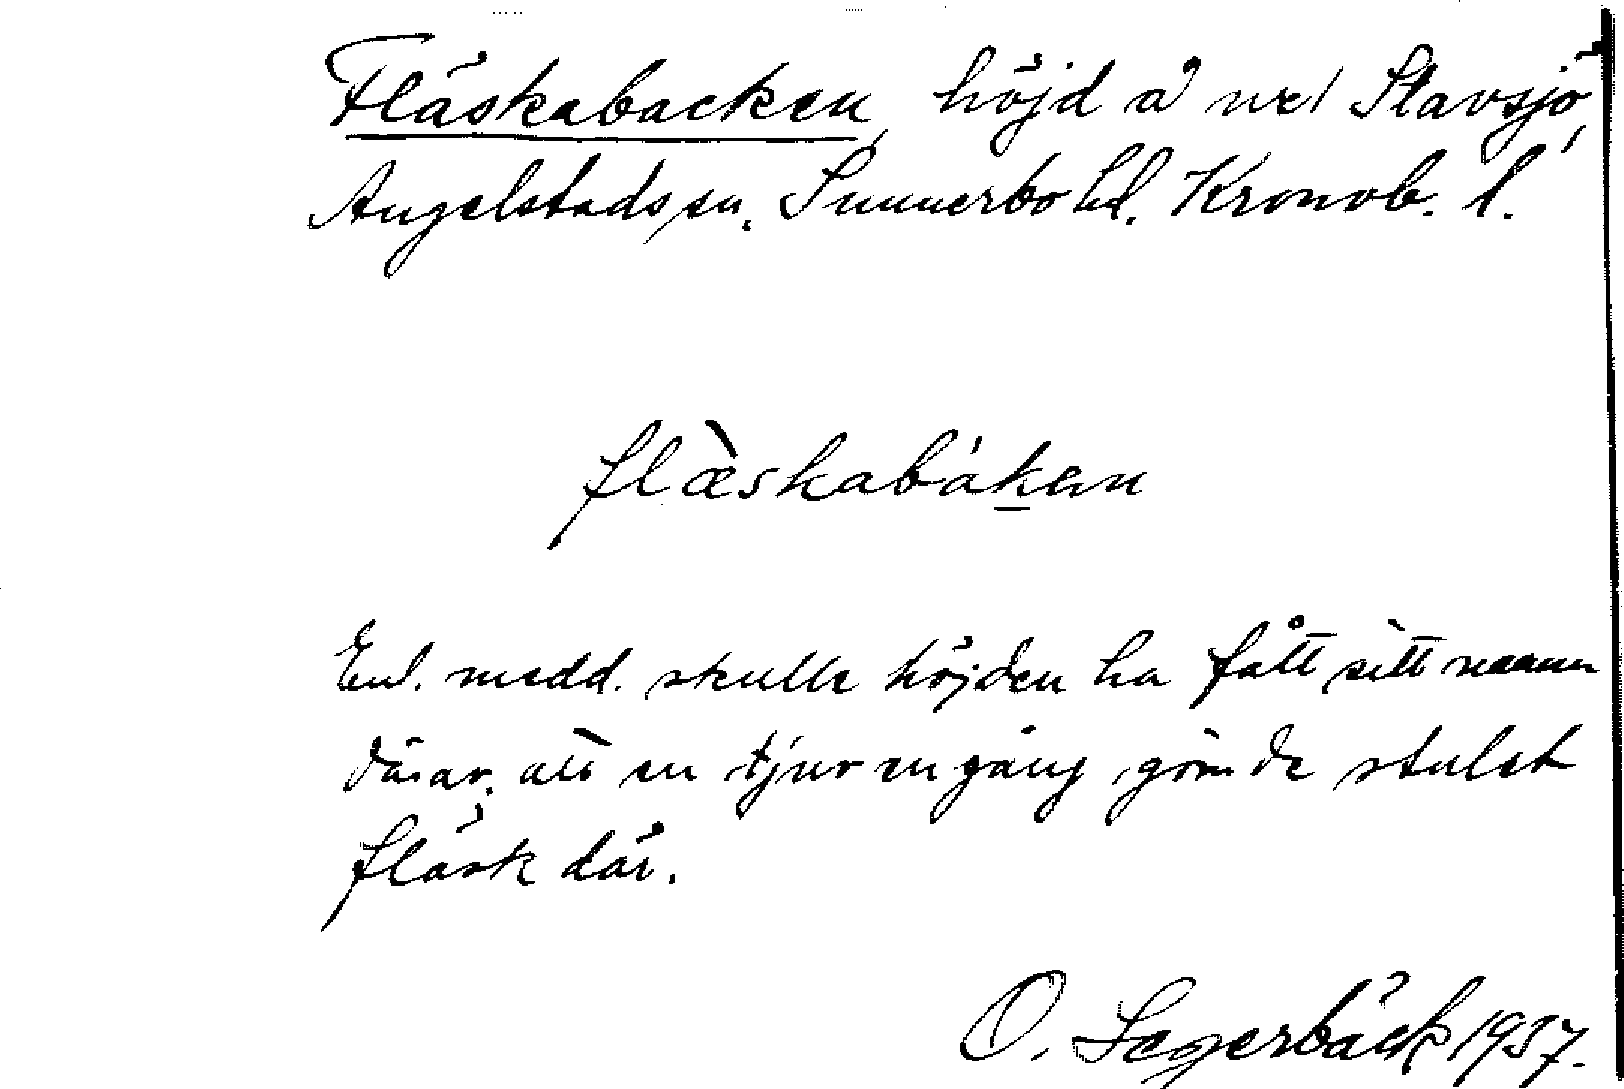 Fläskabacken, höjd å nr 1 Slavsjö,
Angelstads sn. Sunnerbo hd. Kronob. l.
flæ̀skabákan
Enl. medd. skulle höjden ha fått sitt namn
därav, att en tjuv en gång gömde stulet
fläsk där.
O. Segerbäck 1937.